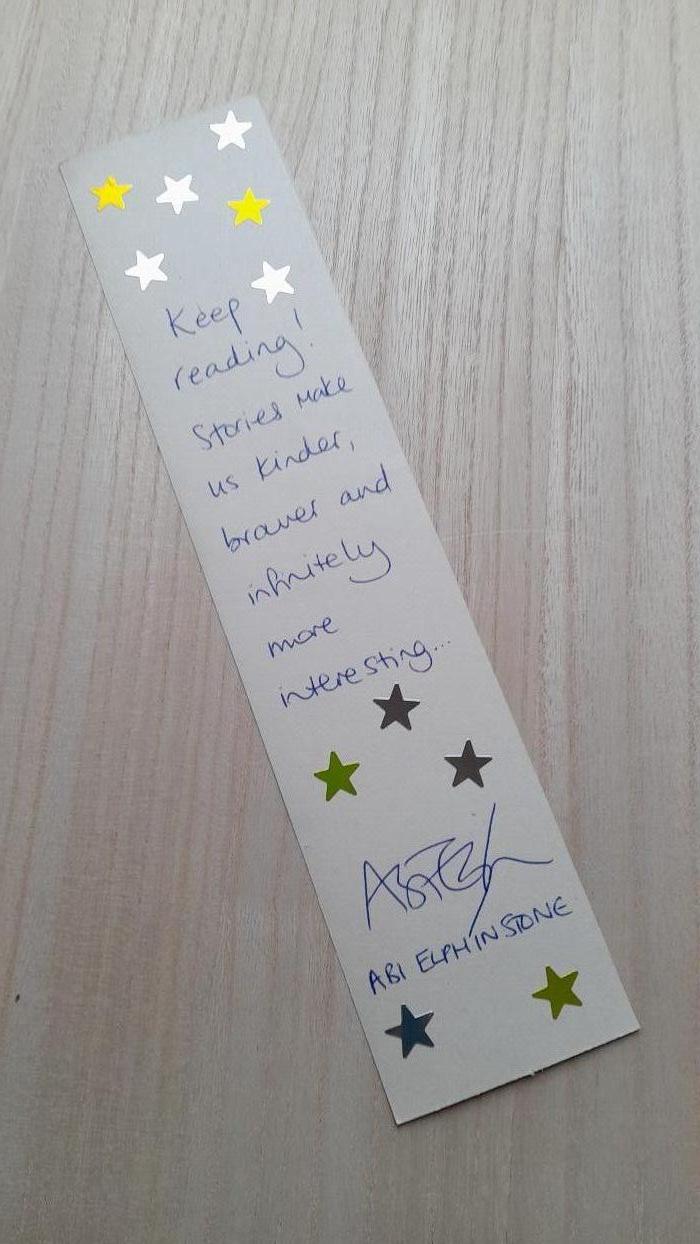 Keep
reading!
Stories make
us kinder,
braver and
infinitely
more
interesting...
ABI ELPHINSTONE